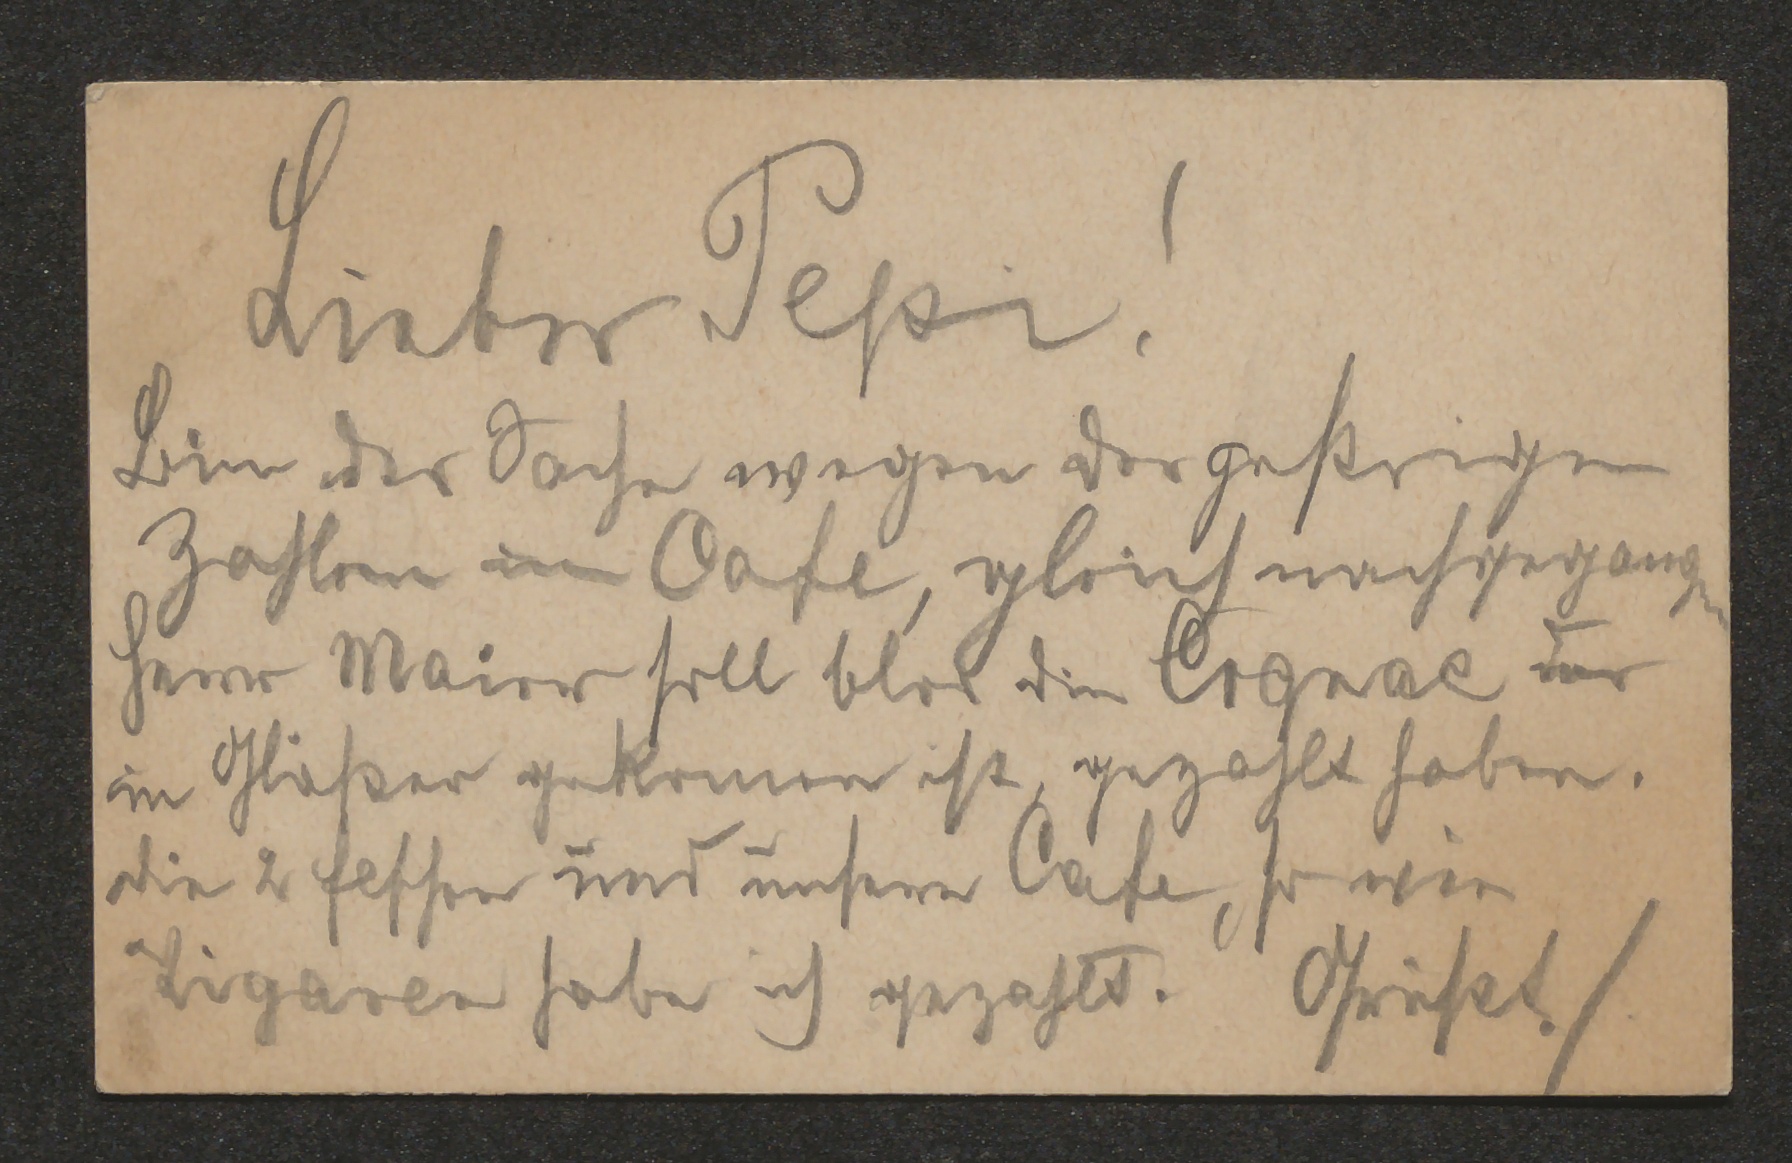 Lieber Pepi!
Bin der Sache wegen der gestrigen
Zahlerei im Cafe, gleich nachgegangen
Herr Maier soll blos die Cognac der
in Gläßer gekommen ist, gezahlt haben.
die 2 und unsere Cafe, so wie
Zigaren habe ich gezahlt. Grüßt!